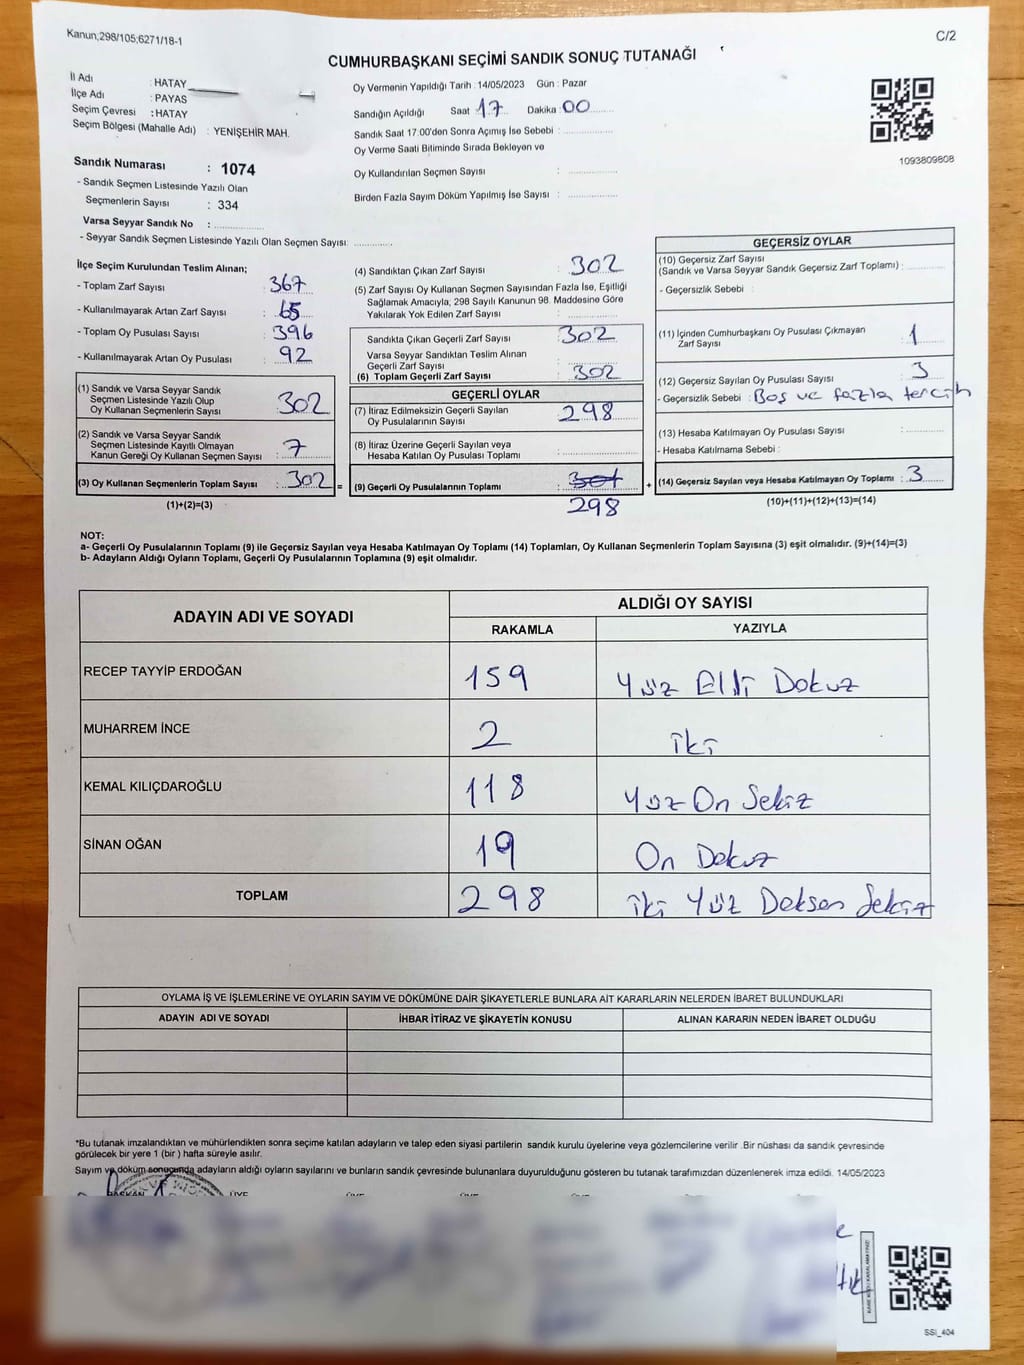 Kanun,298/105;6271/18-1
C/2
CUMHURBAŞKANI SEÇİMİ SANDIK SONUÇ TUTANAĞI
İl Adı : HATAY
İlçe Adı : PAYAS
Seçim Çevresi : HATAY
Seçim Bölgesi (Mahalle Adı) : YENİŞEHİR MAH.
Sandık Numarası : 1074
- Sandık Seçmen Listesinde Yazılı Olan
Seçmenlerin Sayısı : 334
Varsa Seyyar Sandık No :
- Seyyar Sandık Seçmen Listesinde Yazılı Olan Seçmen Sayısı:
Oy Vermenin Yapıldığı Tarih : 14/05/2023 Gün : Pazar
Sandığın Açıldığı Saat 17 Dakika 00
Sandık Saat 17:00'den Sonra Açımış İse Sebebi :
Oy Verme Saati Bitiminde Sırada Bekleyen ve
Oy Kullandırılan Seçmen Sayısı :
Birden Fazla Sayım Döküm Yapılmış İse Sayısı :
1093809808
İlçe Seçim Kurulundan Teslim Alınan;
- Toplam Zarf Sayısı : 367
- Kullanılmayarak Artan Zarf Sayısı : 65
- Toplam Oy Pusulası Sayısı : 396
- Kullanılmayarak Artan Oy Pusulası : 92
(1) Sandık ve Varsa Seyyar Sandık
Seçmen Listesinde Yazılı Olup
Oy Kullanan Seçmenlerin Sayısı : 302
(2) Sandık ve Varsa Seyyar Sandık
Seçmen Listesinde Kayıtlı Olmayan
Kanun Gereği Oy Kullanan Seçmen Sayısı : 7
(3) Oy Kullanan Seçmenlerin Toplam Sayısı : 302 =
(1)+(2)=(3)
(4) Sandıktan Çıkan Zarf Sayısı : 302
(5) Zarf Sayısı Oy Kullanan Seçmen Sayısından Fazla İse, Eşitliği
Sağlamak Amacıyla; 298 Sayılı Kanunun 98. Maddesine Göre
Yakılarak Yok Edilen Zarf Sayısı :
Sandıkta Çıkan Geçerli Zarf Sayısı : 302
Varsa Seyyar Sandıktan Teslim Alınan
Geçerli Zarf Sayısı :
(6) Toplam Geçerli Zarf Sayısı : 302
GEÇERLİ OYLAR
(7) İtiraz Edilmeksizin Geçerli Sayılan
Oy Pusulalarının Sayısı : 298
(8) İtiraz Üzerine Geçerli Sayılan veya
Hesaba Katılan Oy Pusulası Toplamı :
(9) Geçerli Oy Pusulalarının Toplamı : 301 +
298
GEÇERSİZ OYLAR
(10) Geçersiz Zarf Sayısı
(Sandık ve Varsa Seyyar Sandık Geçersiz Zarf Toplamı) :
- Geçersizlik Sebebi :
(11) İçinden Cumhurbaşkanı Oy Pusulası Çıkmayan
Zarf Sayısı : 1
(12) Geçersiz Sayılan Oy Pusulası Sayısı : 3
- Geçersizlik Sebebi : Boş ve fazla tercih
(13) Hesaba Katılmayan Oy Pusulası Sayısı :
- Hesaba Katılmama Sebebi :
(14) Geçersiz Sayılan veya Hesaba Katılmayan Oy Toplamı : 3
(10)+(11)+(12)+(13)=(14)
NOT:
a- Geçerli Oy Pusulalarının Toplamı (9) ile Geçersiz Sayılan veya Hesaba Katılmayan Oy Toplamı (14) Toplamları, Oy Kullanan Seçmenlerin Toplam Sayısına (3) eşit olmalıdır. (9)+(14)=(3)
b- Adayların Aldığı Oyların Toplamı, Geçerli Oy Pusulalarının Toplamına (9) eşit olmalıdır.
ADAYIN ADI VE SOYADI
ALDIĞI OY SAYISI
RAKAMLA YAZIYLA
RECEP TAYYİP ERDOĞAN 159 Yüz Elli Dokuz
MUHARREM İNCE 2 iki
KEMAL KILIÇDAROĞLU 118 Yüz On Sekiz
SİNAN OĞAN 19 On Dokuz
TOPLAM 298 iki Yüz Doksan Sekiz
OYLAMA İŞ VE İŞLEMLERİNE VE OYLARIN SAYIM VE DÖKÜMÜNE DAİR ŞİKAYETLERLE BUNLARA AİT KARARLARIN NELERDEN İBARET BULUNDUKLARI
ADAYIN ADI VE SOYADI İHBAR İTİRAZ VE ŞİKAYETİN KONUSU ALINAN KARARIN NEDEN İBARET OLDUĞU
*Bu tutanak imzalandıktan ve mühürlendikten sonra seçime katılan adayların ve talep eden siyasi partilerin sandık kurulu üyelerine veya gözlemcilerine verilir .Bir nüshası da sandık çevresinde
görülecek bir yere 1 (bir ) hafta süreyle asılır.
Sayım ve döküm sonucunda adayların aldığı oyların sayılarını ve bunların sandık çevresinde bulunanlara duyurulduğunu gösteren bu tutanak tarafımızdan düzenlenerek imza edildi. 14/05/2023
BAŞKAN ÜYE
SSI_404